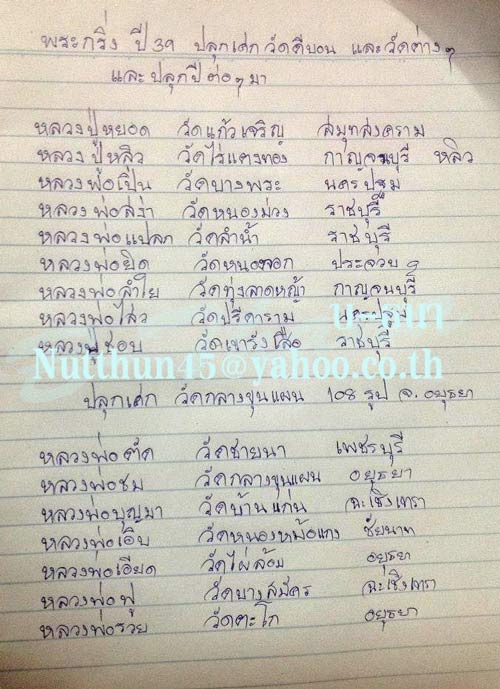 พระกริ่ง ปี 39 ปลุกเสก วัดดีบอน และวัดต่างๆ
และปลุกปีต่อๆมา
หลวงปู่หยอด วัดแก้วเจริญ สมุทสงคราม
หลวงปู่หลิว วัดไร่แตงทอง กาญจนบุรี หลิว
หลวงพ่อเปิ่น วัดบางพระ นครปฐม
หลวงพ่อสง่า วัดหนองม่วง ราชบุรี
หลวงพ่อแปลก วัดลำน้ำ ราชบุรี
หลวงพ่อยิด วัดหนองจอก ประจวบ
หลวงพ่อลำไย วัดทุ่งลาดหญ้า กาญจนบุรี
หลวงพ่อไสว วัดปรีดาราม นครปฐม
หลวงปู่ชอบ วัดเขารังเสือ ราชบุรี
Nutthun45@yahoo.co.th
ปลุกเสก วัดกลางขุนแผน 108 รูป จ.อยุธยา
หลวงพ่อตัด วัดชายนา เพชรบุรี
หลวงพ่อชม วัดกลางขุนแผน อยุธยา
หลวงพ่อบุญมา วัดบ้านแก่น ฉะเชิงเทรา
หลวงพ่อเอิบ วัดหนองหม้อแกง ชัยนาท
หลวงพ่อเอียด วัดไผ่ล้อม อยุธยา
หลวงพ่อฟู วัดบางสมัคร ฉะเชิงเทรา
หลวงพ่อรวย วัดตะโก อยุธยา